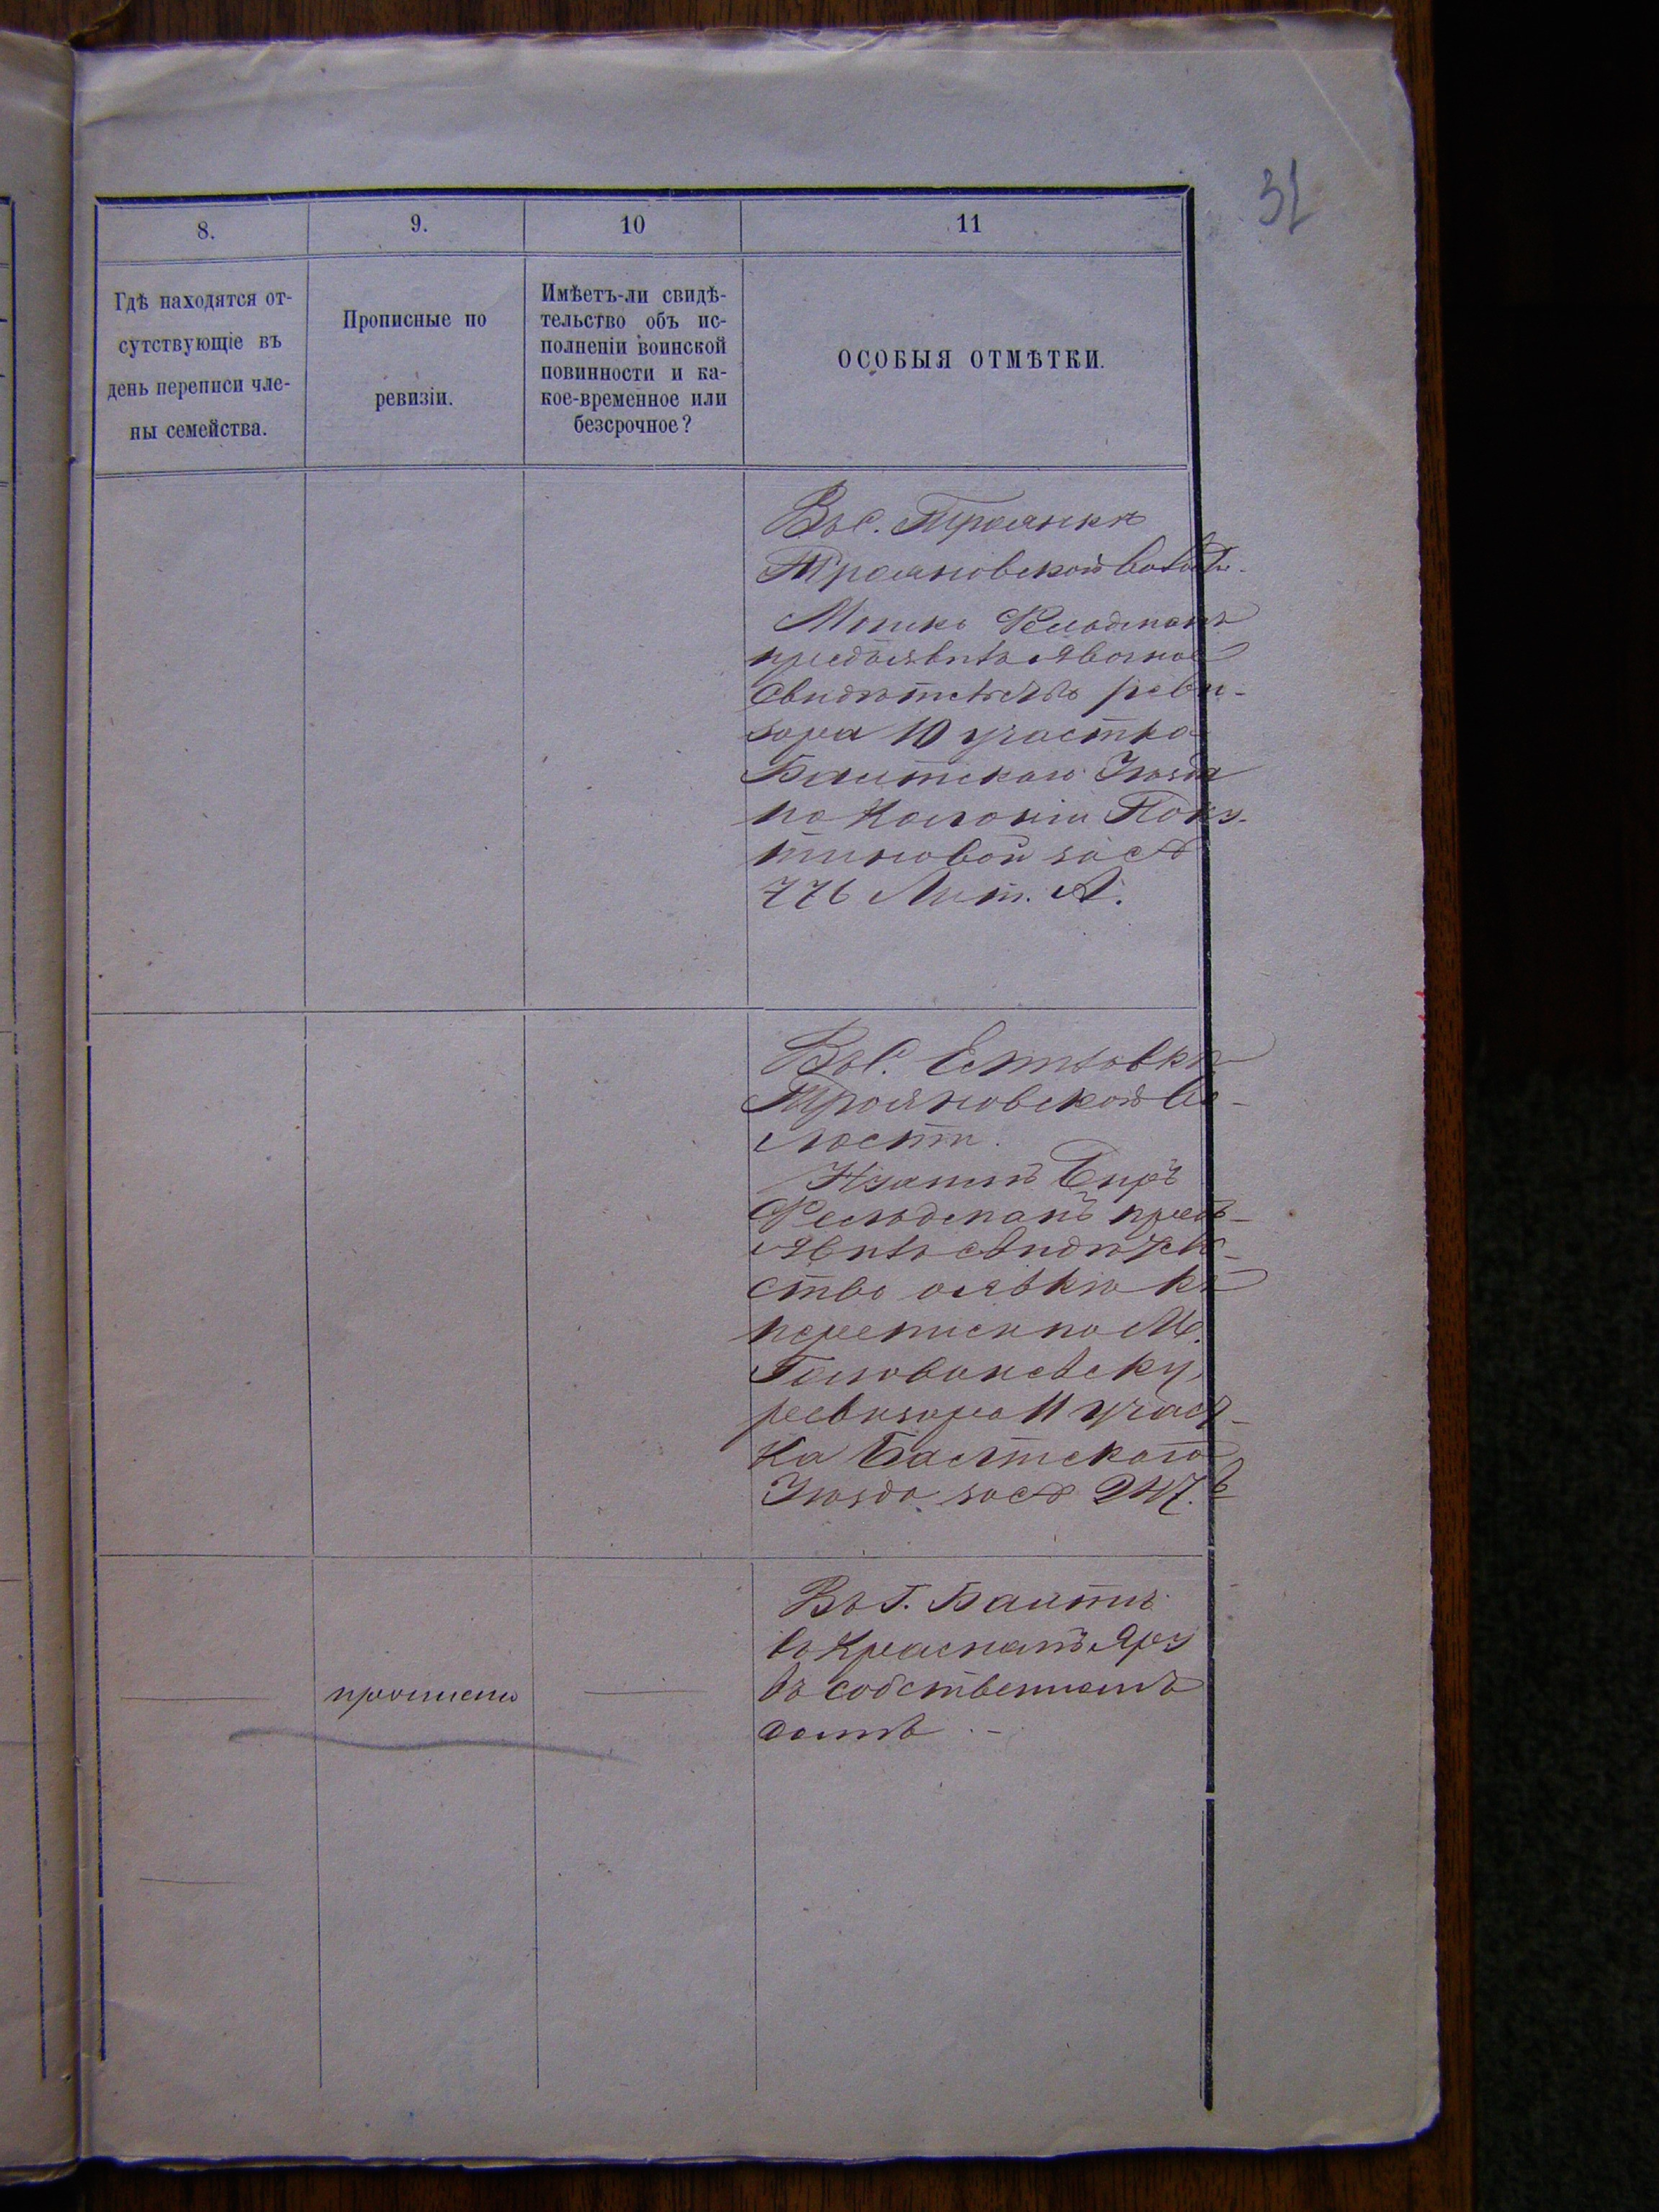 31
8.
9.
10
11
Гдѣ находятся от-
сутствующіе въ
день переписи чле-
ны семейства.
Прописные по
ревизіи.
Имѣетъ-ли свидѣ-
тельство объ ис-
полненіи воинской
повинности и ка-
кое-временное или
безсрочное?
ОСОБЫЯ ОТМѢТКИ.
Въ С. Троянкѣ
Трояновской волости.
Мошко Фельдманъ
предъявилъ явочное
свидѣтельство реви-
зора 10 участка
Балтскаго Уѣзда
по Колоніи
за №
776 Лит. А.
Въ С.
Трояновской во-
лости.
Беръ
Фельдманъ предъ-
явилъ свидѣтель-
ство о явкѣ къ
переписи по М.
Голованевску
ревизора 11 участ-
ка Балтскаго
Уѣзда за № 247.
прописанъ
Въ Г. Балтѣ
въ Красномъ Яру
въ собственномъ
домѣ. -